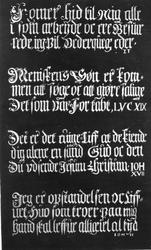 Kommer hid til mig alle
i som arbeide og ere besvær
rede, jeg vil vederqvege eder.
Menniskens Søn er kom-
men at søge og at giøre salige
Det som var for tabt. LVC XIX
Det er det ævige Liff at de kiende
dig alene en sand Gud og den
du udsende Jesum Christum IOH
XVII
Jeg er opstandelsen oc Liff-
uet Huo som troer paa mig
hand skal leffue alligevel at hand
IOH XI